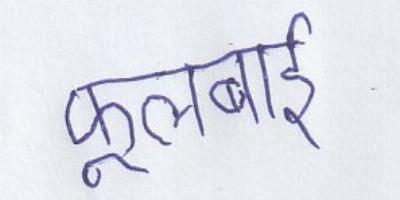 फूलबाई